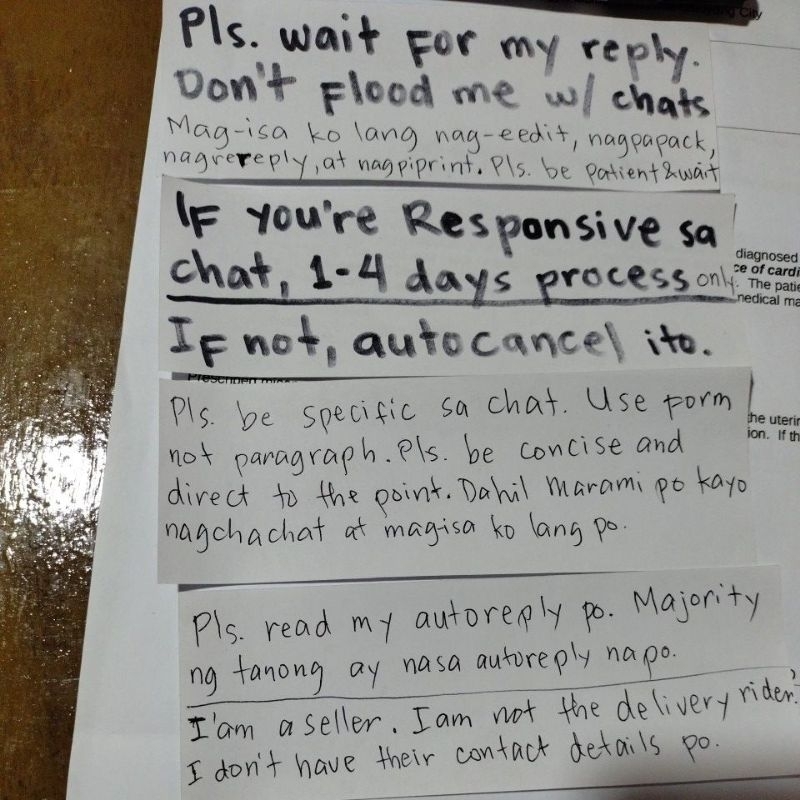 City
Pls. wait for my reply.
Don't flood me w/ chats
Mag-isa ko lang nag-eedit, nagpapack,
nagrereply, at nagpiprint. Pls. be patient & wait
If you're Responsive sa
chat, 1-4 days process only.
If not, autocancel ito.
Pls. be specific sa chat. Use form
not paragraph. Pls. be concise and
direct to the point. Dahil marami po kayo
nagchachat at magisa ko lang po.
Pls. read my autoreply po. Majority
ng tanong ay nasa autoreply na po.
I'am a seller. I am not the delivery rider.
I don't have their contact details po.
diagnosed
ce of cardi
. The patie
medical ma
he uterin
ion. If th